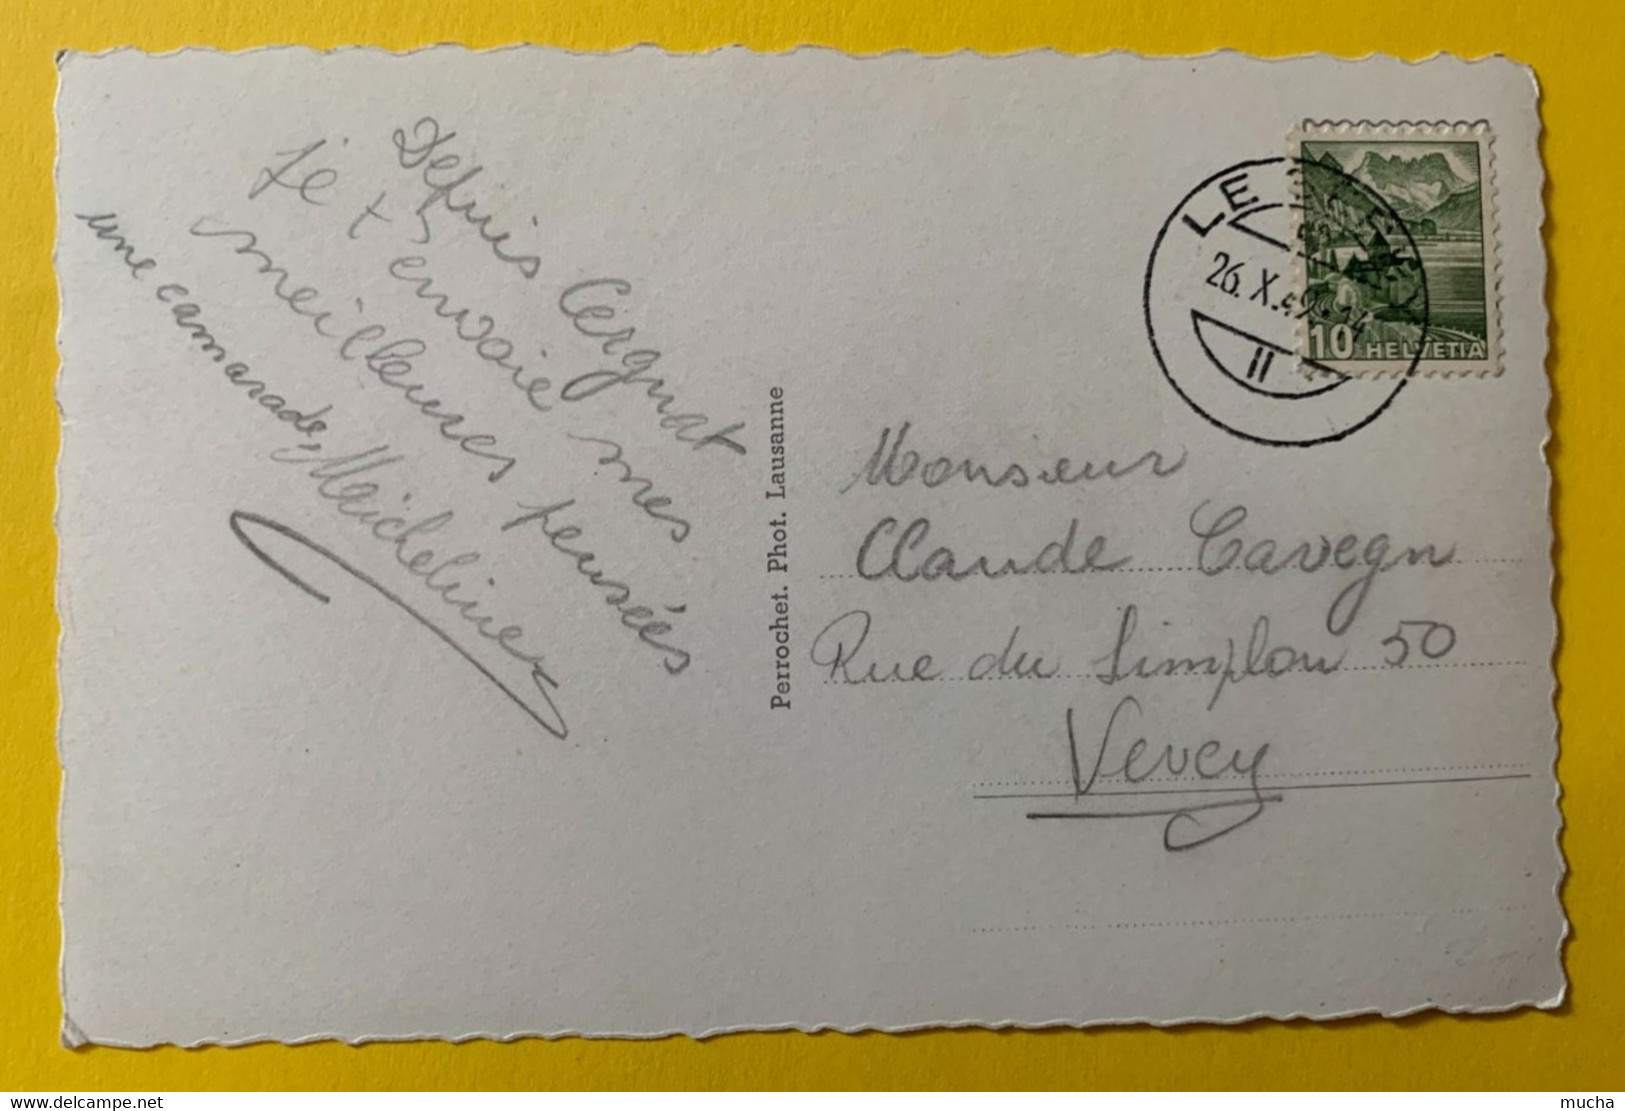 Depuis Cergnat
je t'envoie mes
meilleures pensées
une camarade, Maicheline
Perrochet. Phot. Lausanne
LE
26.X.49.-14
II
10 HELVETIA
Monsieur
Claude Cavegn
Rue du Simplon 50
Vevey
delcampe.net
mucha